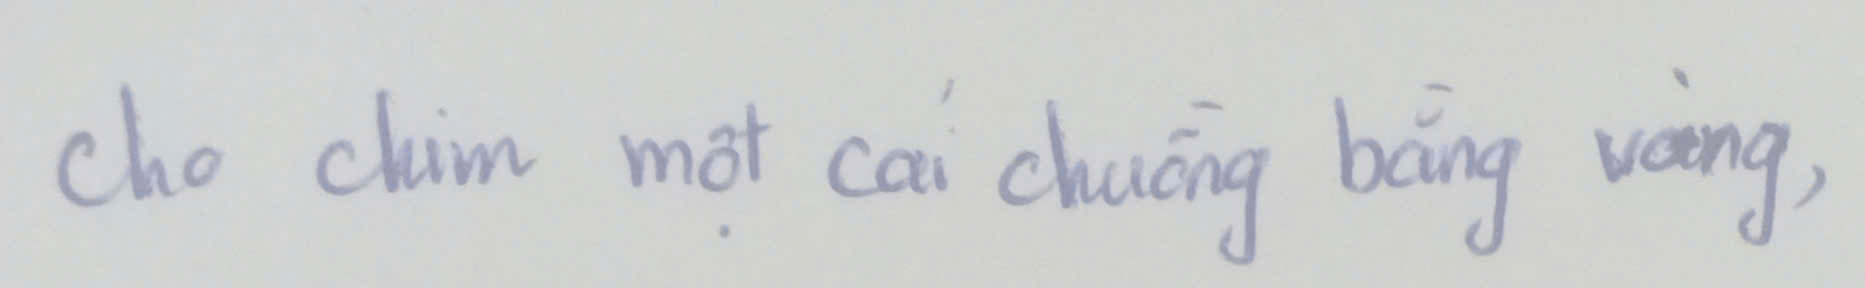 cho chim một cái chuồng bằng vàng,